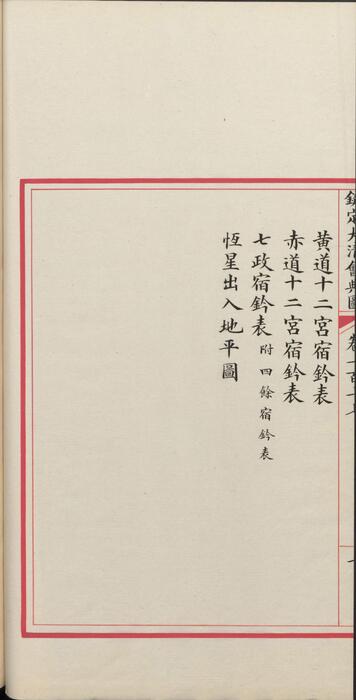 欽定大清會典圖
黃道十二宮宿鈐表
赤道十二宮宿鈐表
七政宿鈐表 附四餘宿鈐表
恆星出入地平圖